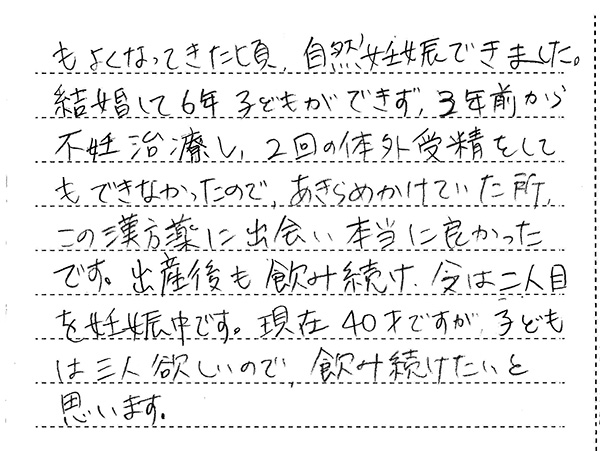 もよくなってきた頃、自然妊娠できました。
結婚して6年子どもができず、3年前から
不妊治療し、2回の体外受精をして
もできなかったので、あきらめかけていた所、
この漢方薬に出会い本当に良かった
です。出産後も飲み続け、今は二人目
を妊娠中です。現在40才ですが、子ども
は三人欲しいので、飲み続けたいと
思います。